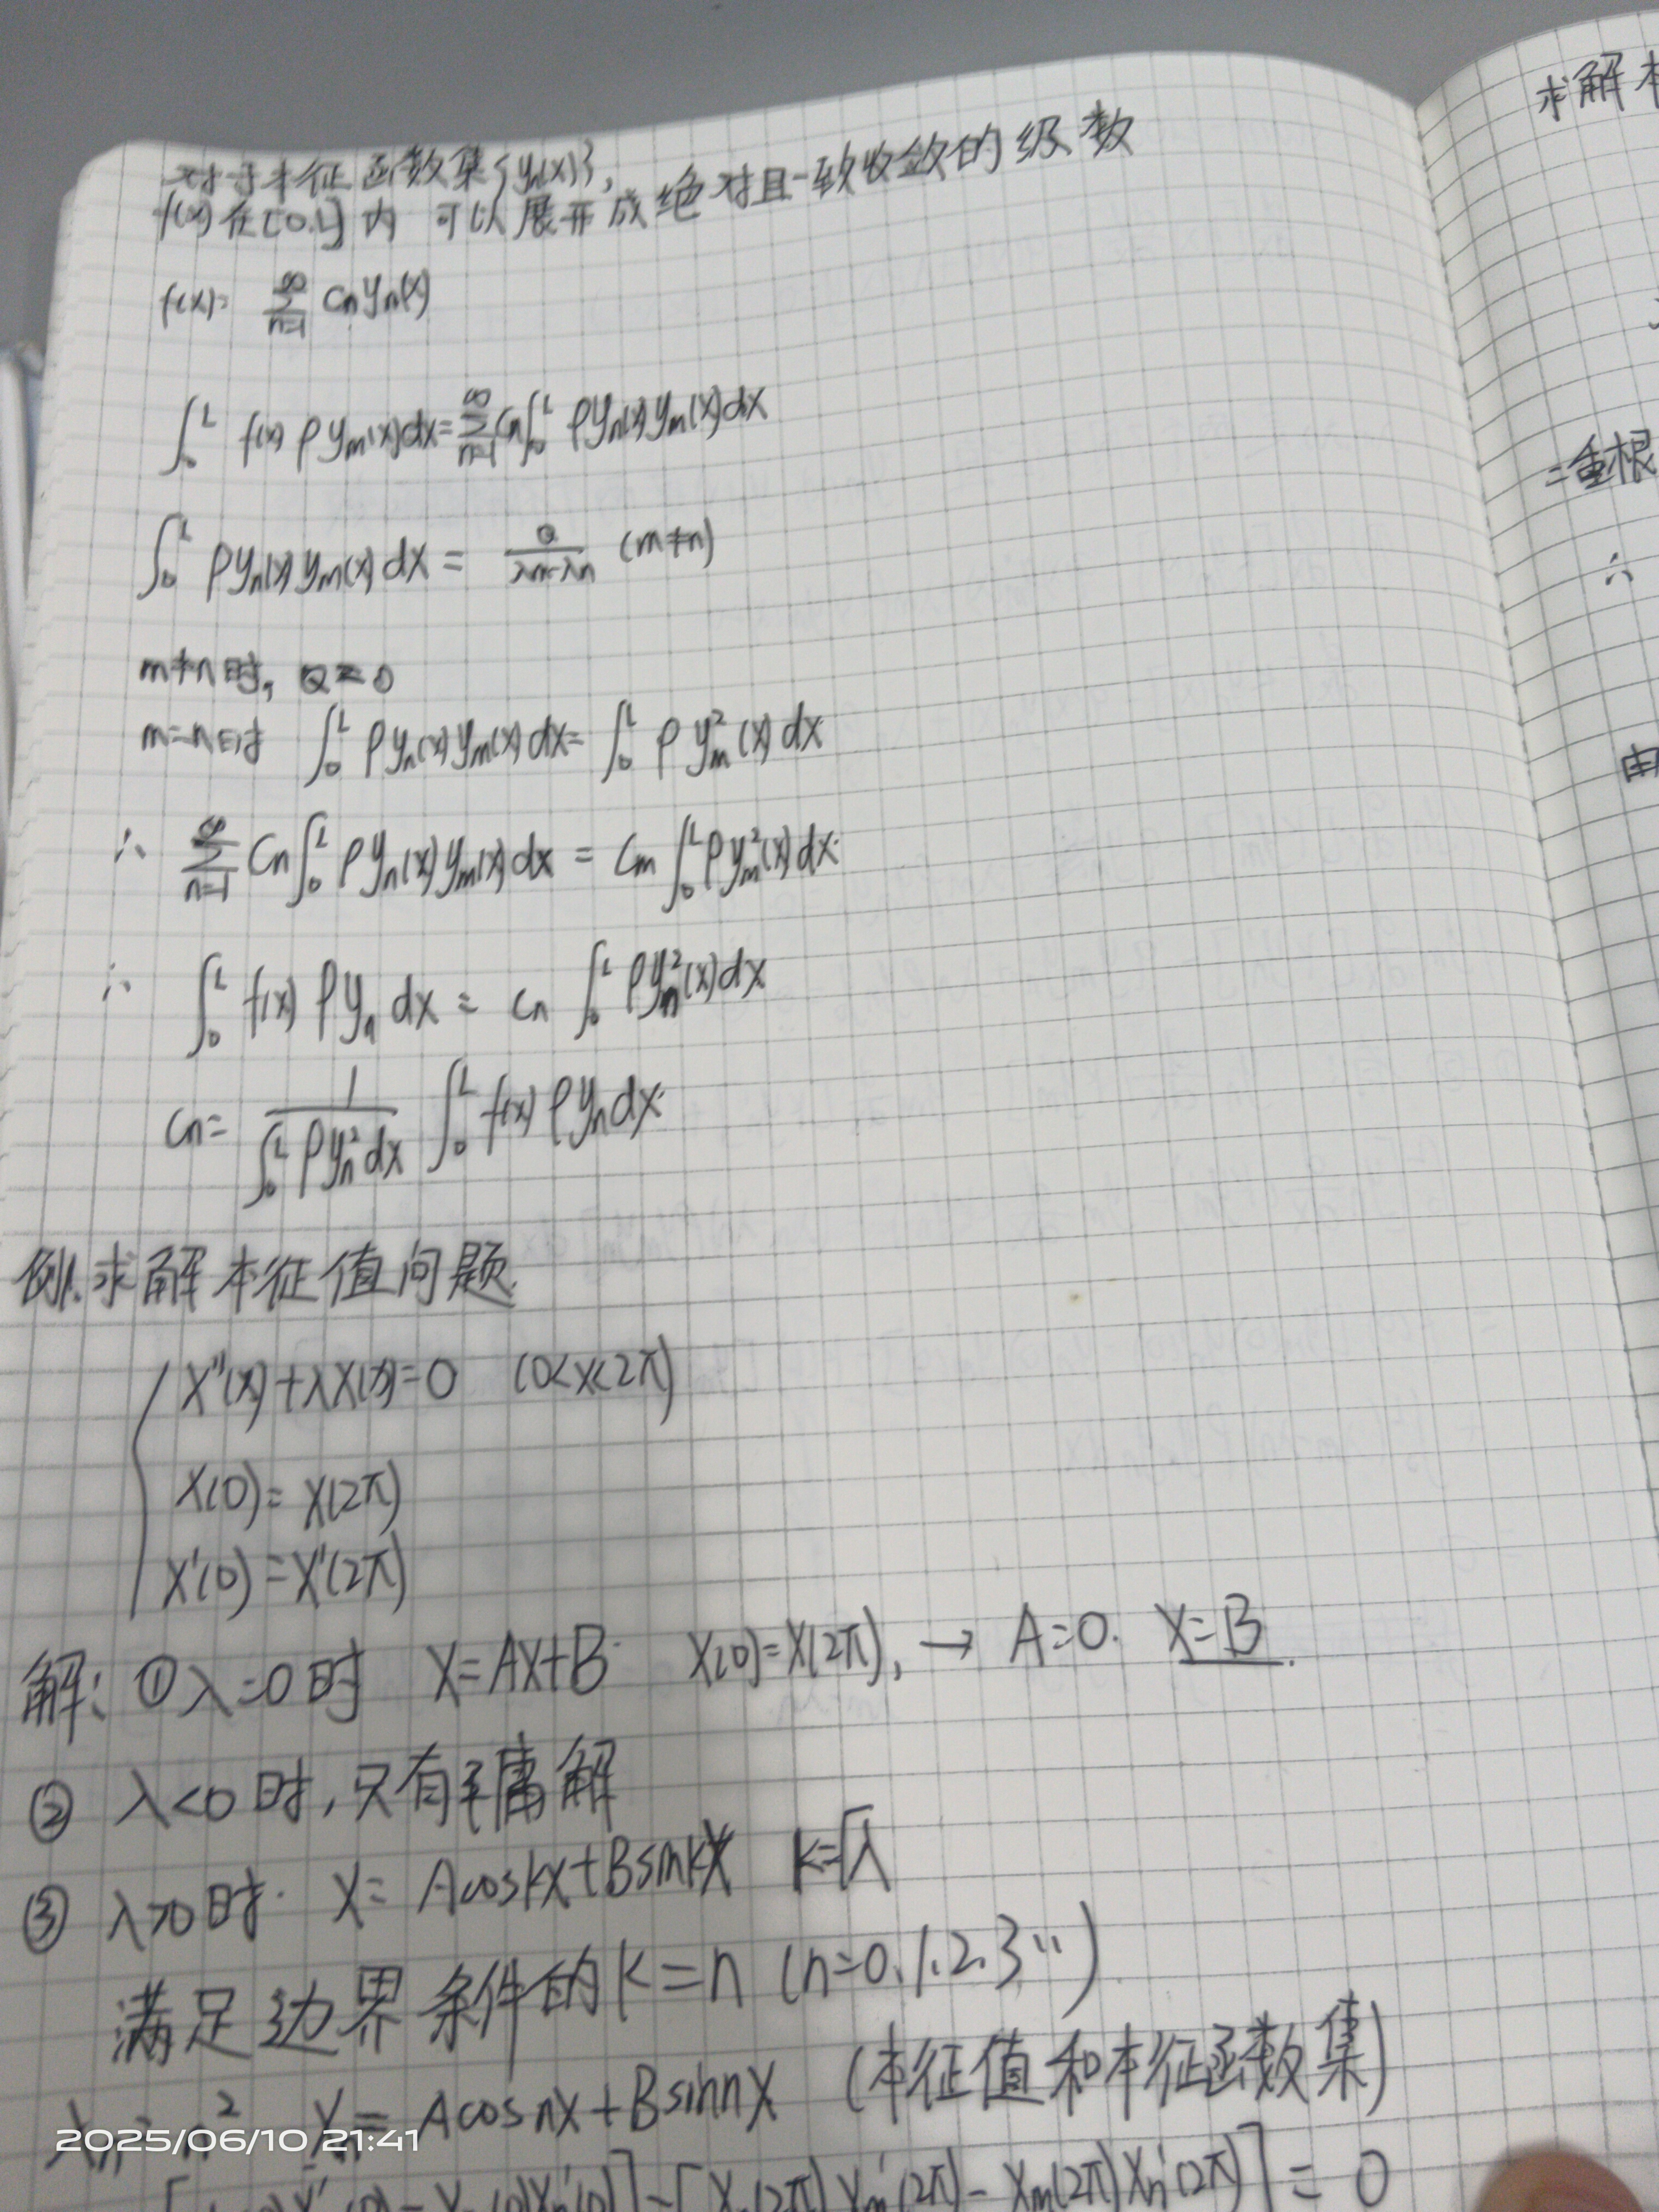 对于本征函数集{yn(x)},
f(x)在[0.L]内 可以展开成绝对且一致收敛的级数
f(x)= ∑_{n=1}^{∞} Cn yn(x)
∫_0^L f(x) ρ ym(x)dx = ∑_{n=1}^{∞} Cn ∫_0^L ρ yn(x) ym(x)dx
∫_0^L ρ yn(x) ym(x) dx = Q/(λm-λn) (m≠n)
m≠n时, Q=0
m=n时 ∫_0^L ρ yn(x) ym(x) dx = ∫_0^L ρ ym²(x) dx
∴ ∑_{n=1}^{∞} Cn ∫_0^L ρ yn(x) ym(x) dx = Cm ∫_0^L ρ ym²(x) dx
∴ ∫_0^L f(x) ρ yn dx = Cn ∫_0^L ρ yn²(x) dx
Cn = 1/(∫_0^L ρ yn² dx) ∫_0^L f(x) ρ yn dx
例1.求解本征值问题.
X''(x)+λX(x)=0 (0<x<2π)
X(0)=X(2π)
X'(0)=X'(2π)
解: ①λ=0时 X=AX+B X(0)=X(2π), → A=0. X=B.
② λ<0时,只有平庸解
③ λ>0时. X= Acoskx+Bsinkx k=√λ
满足边界条件的k=n (n=0.1.2.3…)
λn=n² Xn= Acosnx+Bsinnx (本征值和本征函数集)
Xm'(2π)-Xm(2π)Xn'(2π)]=0
求解本
二重根
∴
由
2025/06/10 21:41